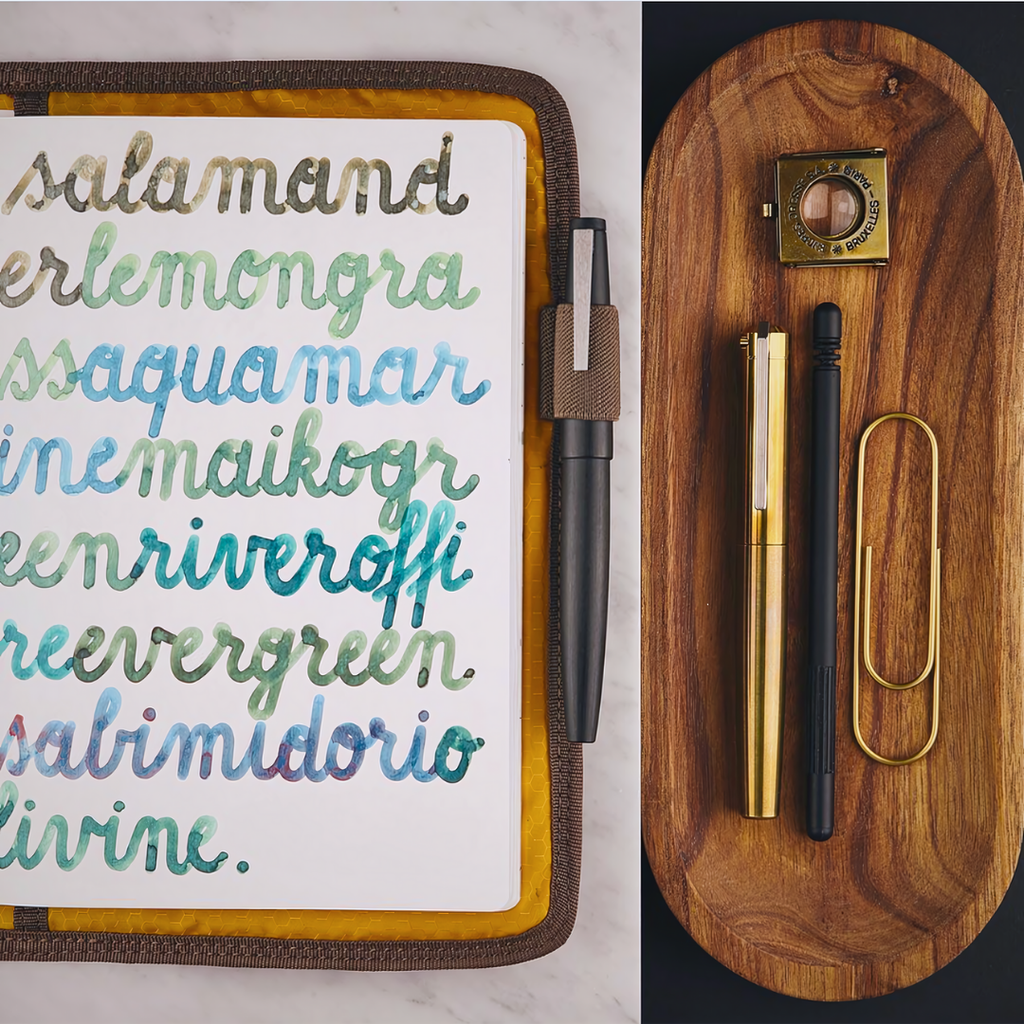 salamand
erlemongra
ssaquamar
inemaikogr
eenriveroffi
reevergreen
sabimidorio
livine.
BRUXELLES – PARIS